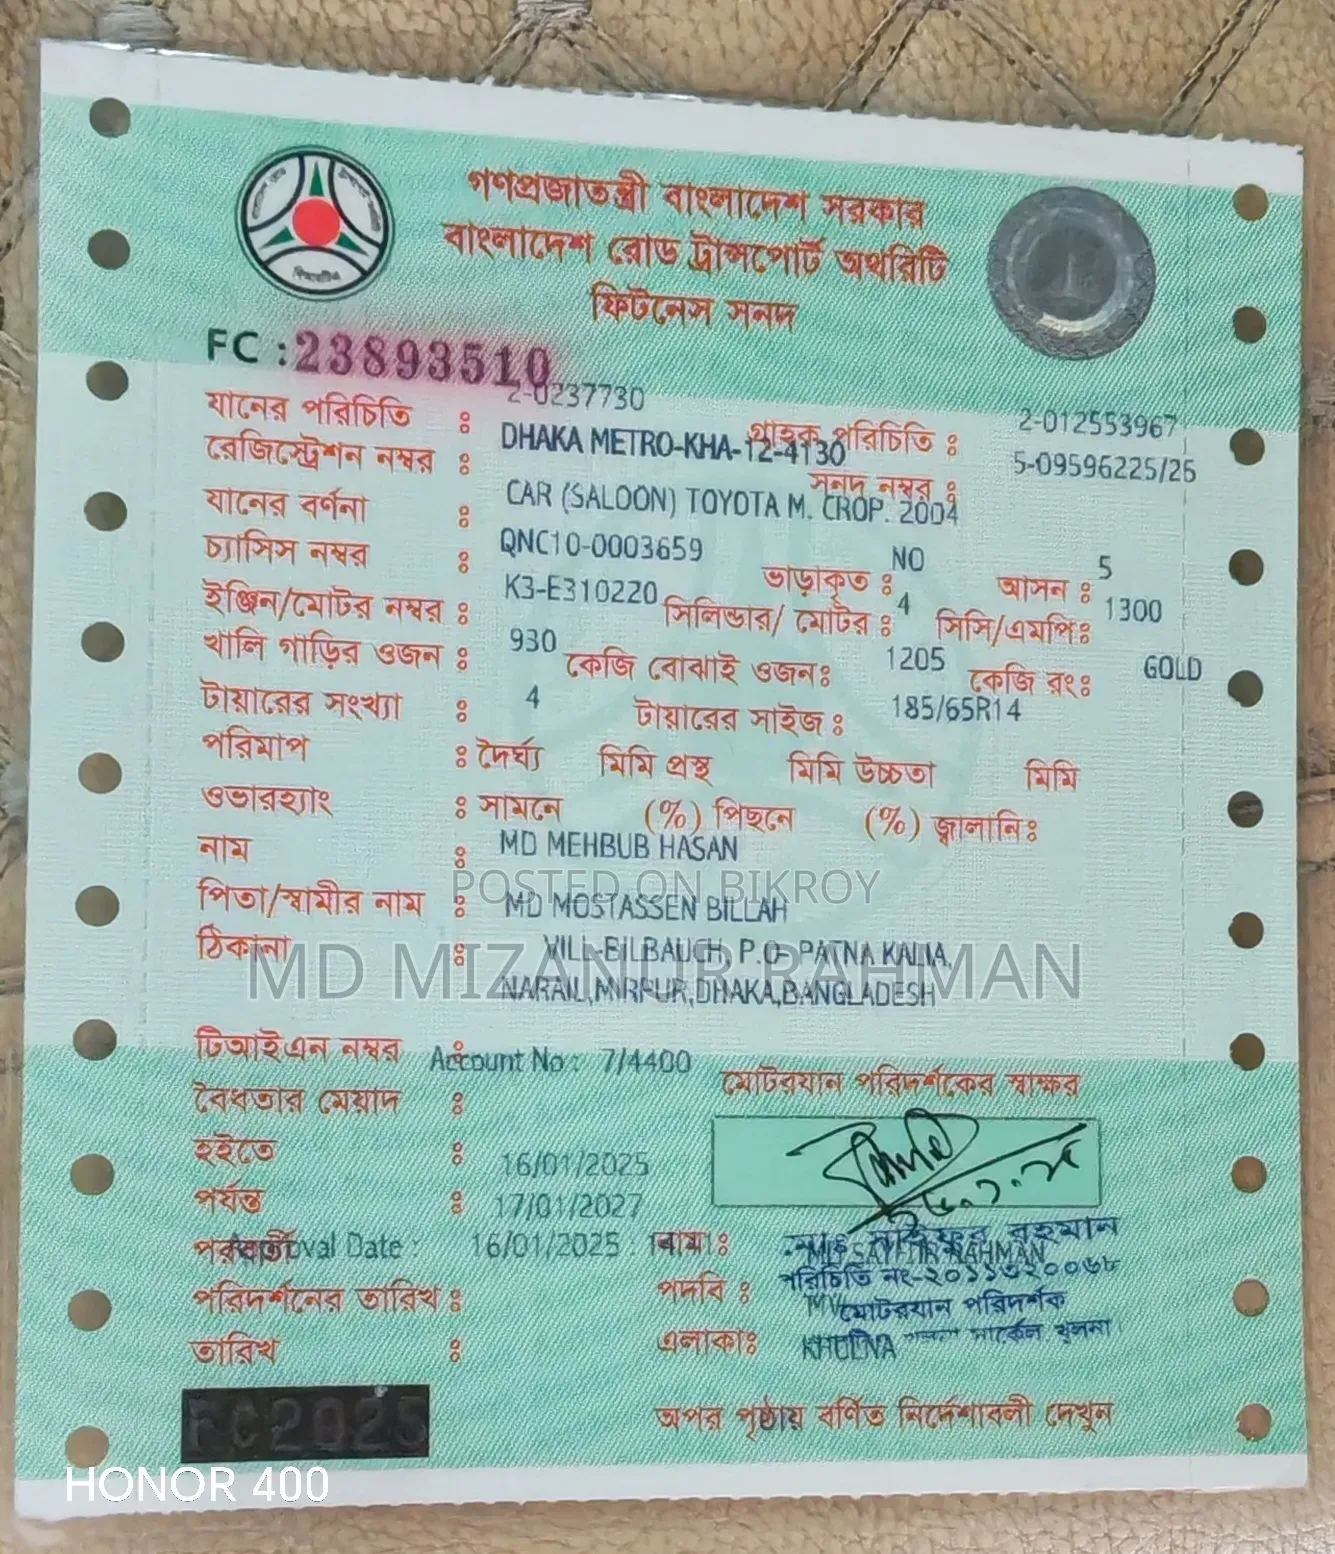 গণপ্রজাতন্ত্রী বাংলাদেশ সরকার
বাংলাদেশ রোড ট্রান্সপোর্ট অথরিটি
ফিটনেস সনদ
FC : 23893510
যানের পরিচিতি : 2-0237730 গ্রাহক পরিচিতি : 2-012553967
রেজিস্ট্রেশন নম্বর : DHAKA METRO-KHA-12-4130 সনদ নম্বর : 5-09596225/25
যানের বর্ণনা : CAR (SALOON) TOYOTA M. CROP. 2004
চ্যাসিস নম্বর : QNC10-0003659 ভাড়াকৃত : NO আসন : 5
ইঞ্জিন/মোটর নম্বর : K3-E310220 সিলিন্ডার/ মোটর : 4 সিসি/এমপি: 1300
খালি গাড়ির ওজন : 930 কেজি বোঝাই ওজন: 1205 কেজি রং: GOLD
টায়ারের সংখ্যা : 4 টায়ারের সাইজ : 185/65R14
পরিমাপ : দৈর্ঘ্য মিমি প্রস্থ মিমি উচ্চতা মিমি
ওভারহ্যাং : সামনে (%) পিছনে (%) জ্বালানি:
নাম : MD MEHBUB HASAN
POSTED ON BIKROY
পিতা/স্বামীর নাম : MD MOSTASSEN BILLAH
ঠিকানা : VILL-BILBAUCH, P.O- PATNA KALIA,
MD MIZANUR RAHMAN
NARAIL,MIRPUR,DHAKA,BANGLADESH
টিআইএন নম্বর : Account No : 7/4400
মোটরযান পরিদর্শকের স্বাক্ষর
বৈধতার মেয়াদ :
হইতে : 16/01/2025
পর্যন্ত : 17/01/2027
পরবর্তী Approval Date : 16/01/2025 : নাম: MD SAYFUR RAHMAN
সাইফুর রহমান
পরিচিতি নং-২০১১৩২০০৬৮
পরিদর্শনের তারিখ : পদবি : MV
মোটরযান পরিদর্শক
তারিখ : এলাকা: KHULNA
সার্কেল, খুলনা
FC2025
অপর পৃষ্ঠায় বর্ণিত নির্দেশাবলী দেখুন
HONOR 400